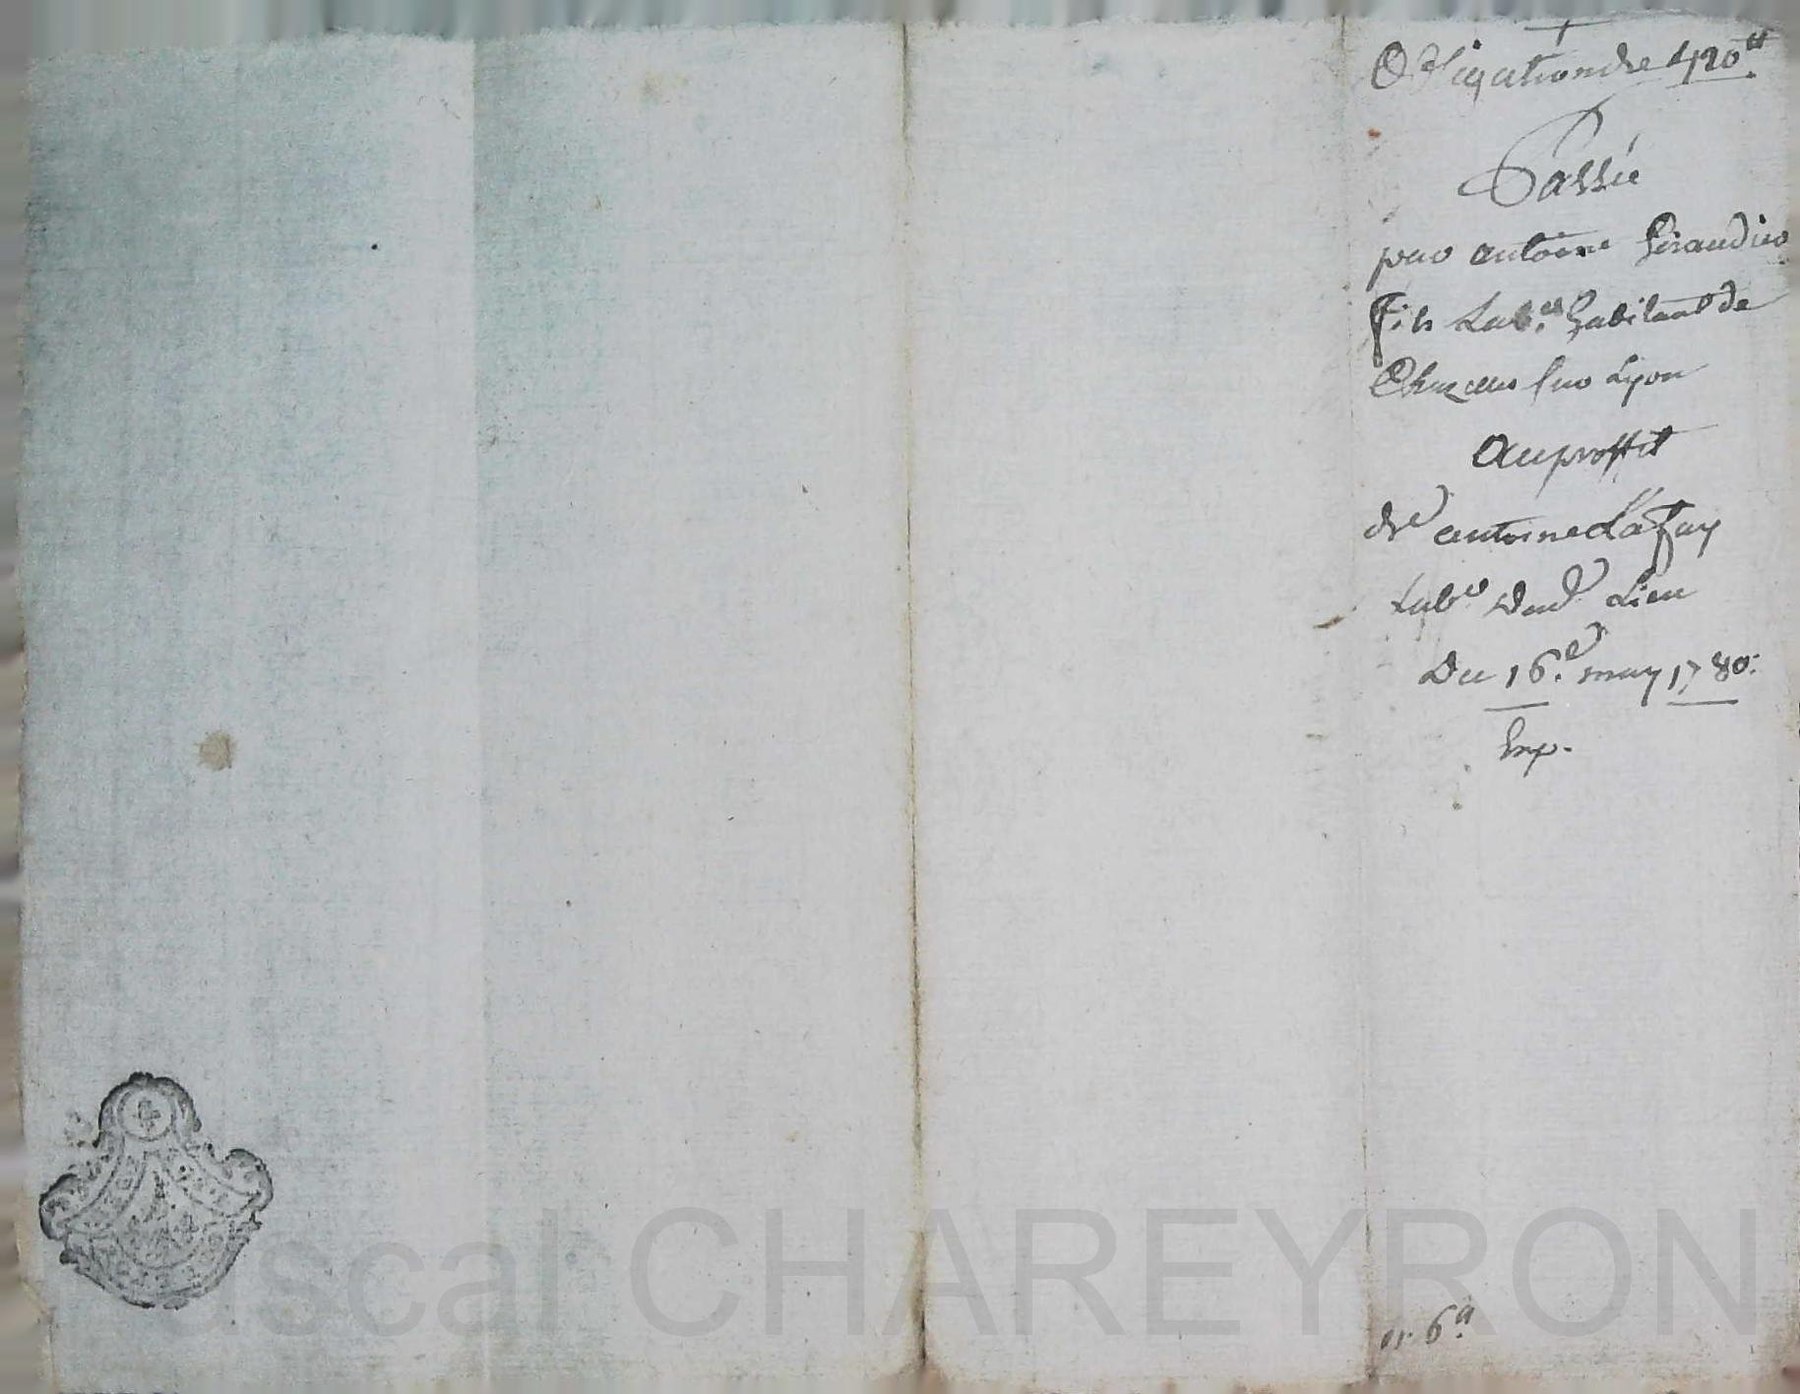 Obligation de 420ᵗᵗ
Passée
par antoine Giraudier
fils Lab.ʳ habitant de
Chazelles sur Lyon
Au proffit
de antoine Lafay
Labʳ dud. Lieu
Du 16.ᵉ may 1780.
Exp.
Pascal CHAREYRON